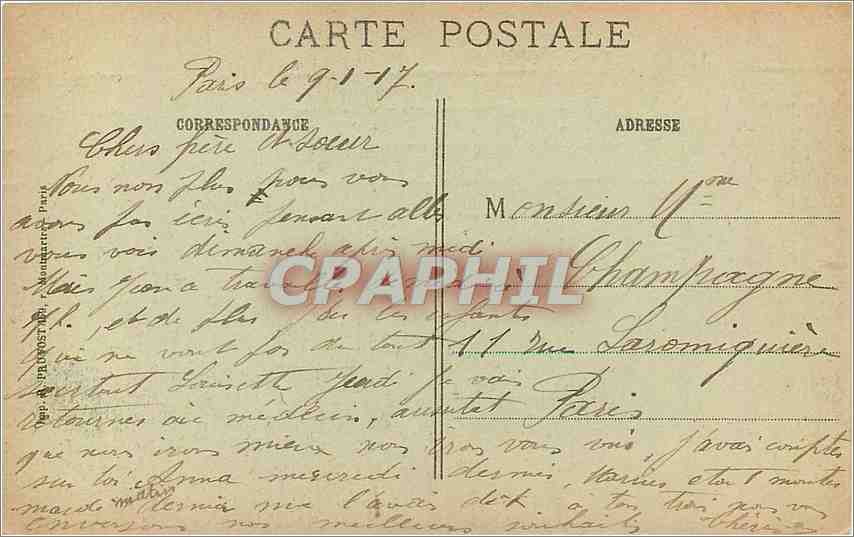 CARTE POSTALE
Paris le 9-1-17.
CORRESPONDANCE
Chers père et soeur
Nous non plus nous vous
avons pas écris pensant aller
vous voir dimanche après midi
Mais on a travaillé
et de plus les enfants
qui ne vont pas du tout
surtout Louisette Jeudi je vais
retourner au médecin, aussitot
que nous irons mieux nous irons vous voir, j'avais comptés
sur toi Anna mercredi dernier, Marius etait montes
matin
mardi dernier me l'avais dit a tous trois nous vous
envoyons nos meilleurs souhaits Thérèse
ADRESSE
Monsieur
Champagne
11 rue Laromiguière
Paris
Imp. PROVOST r. Montmartre Paris
CPAPHIL